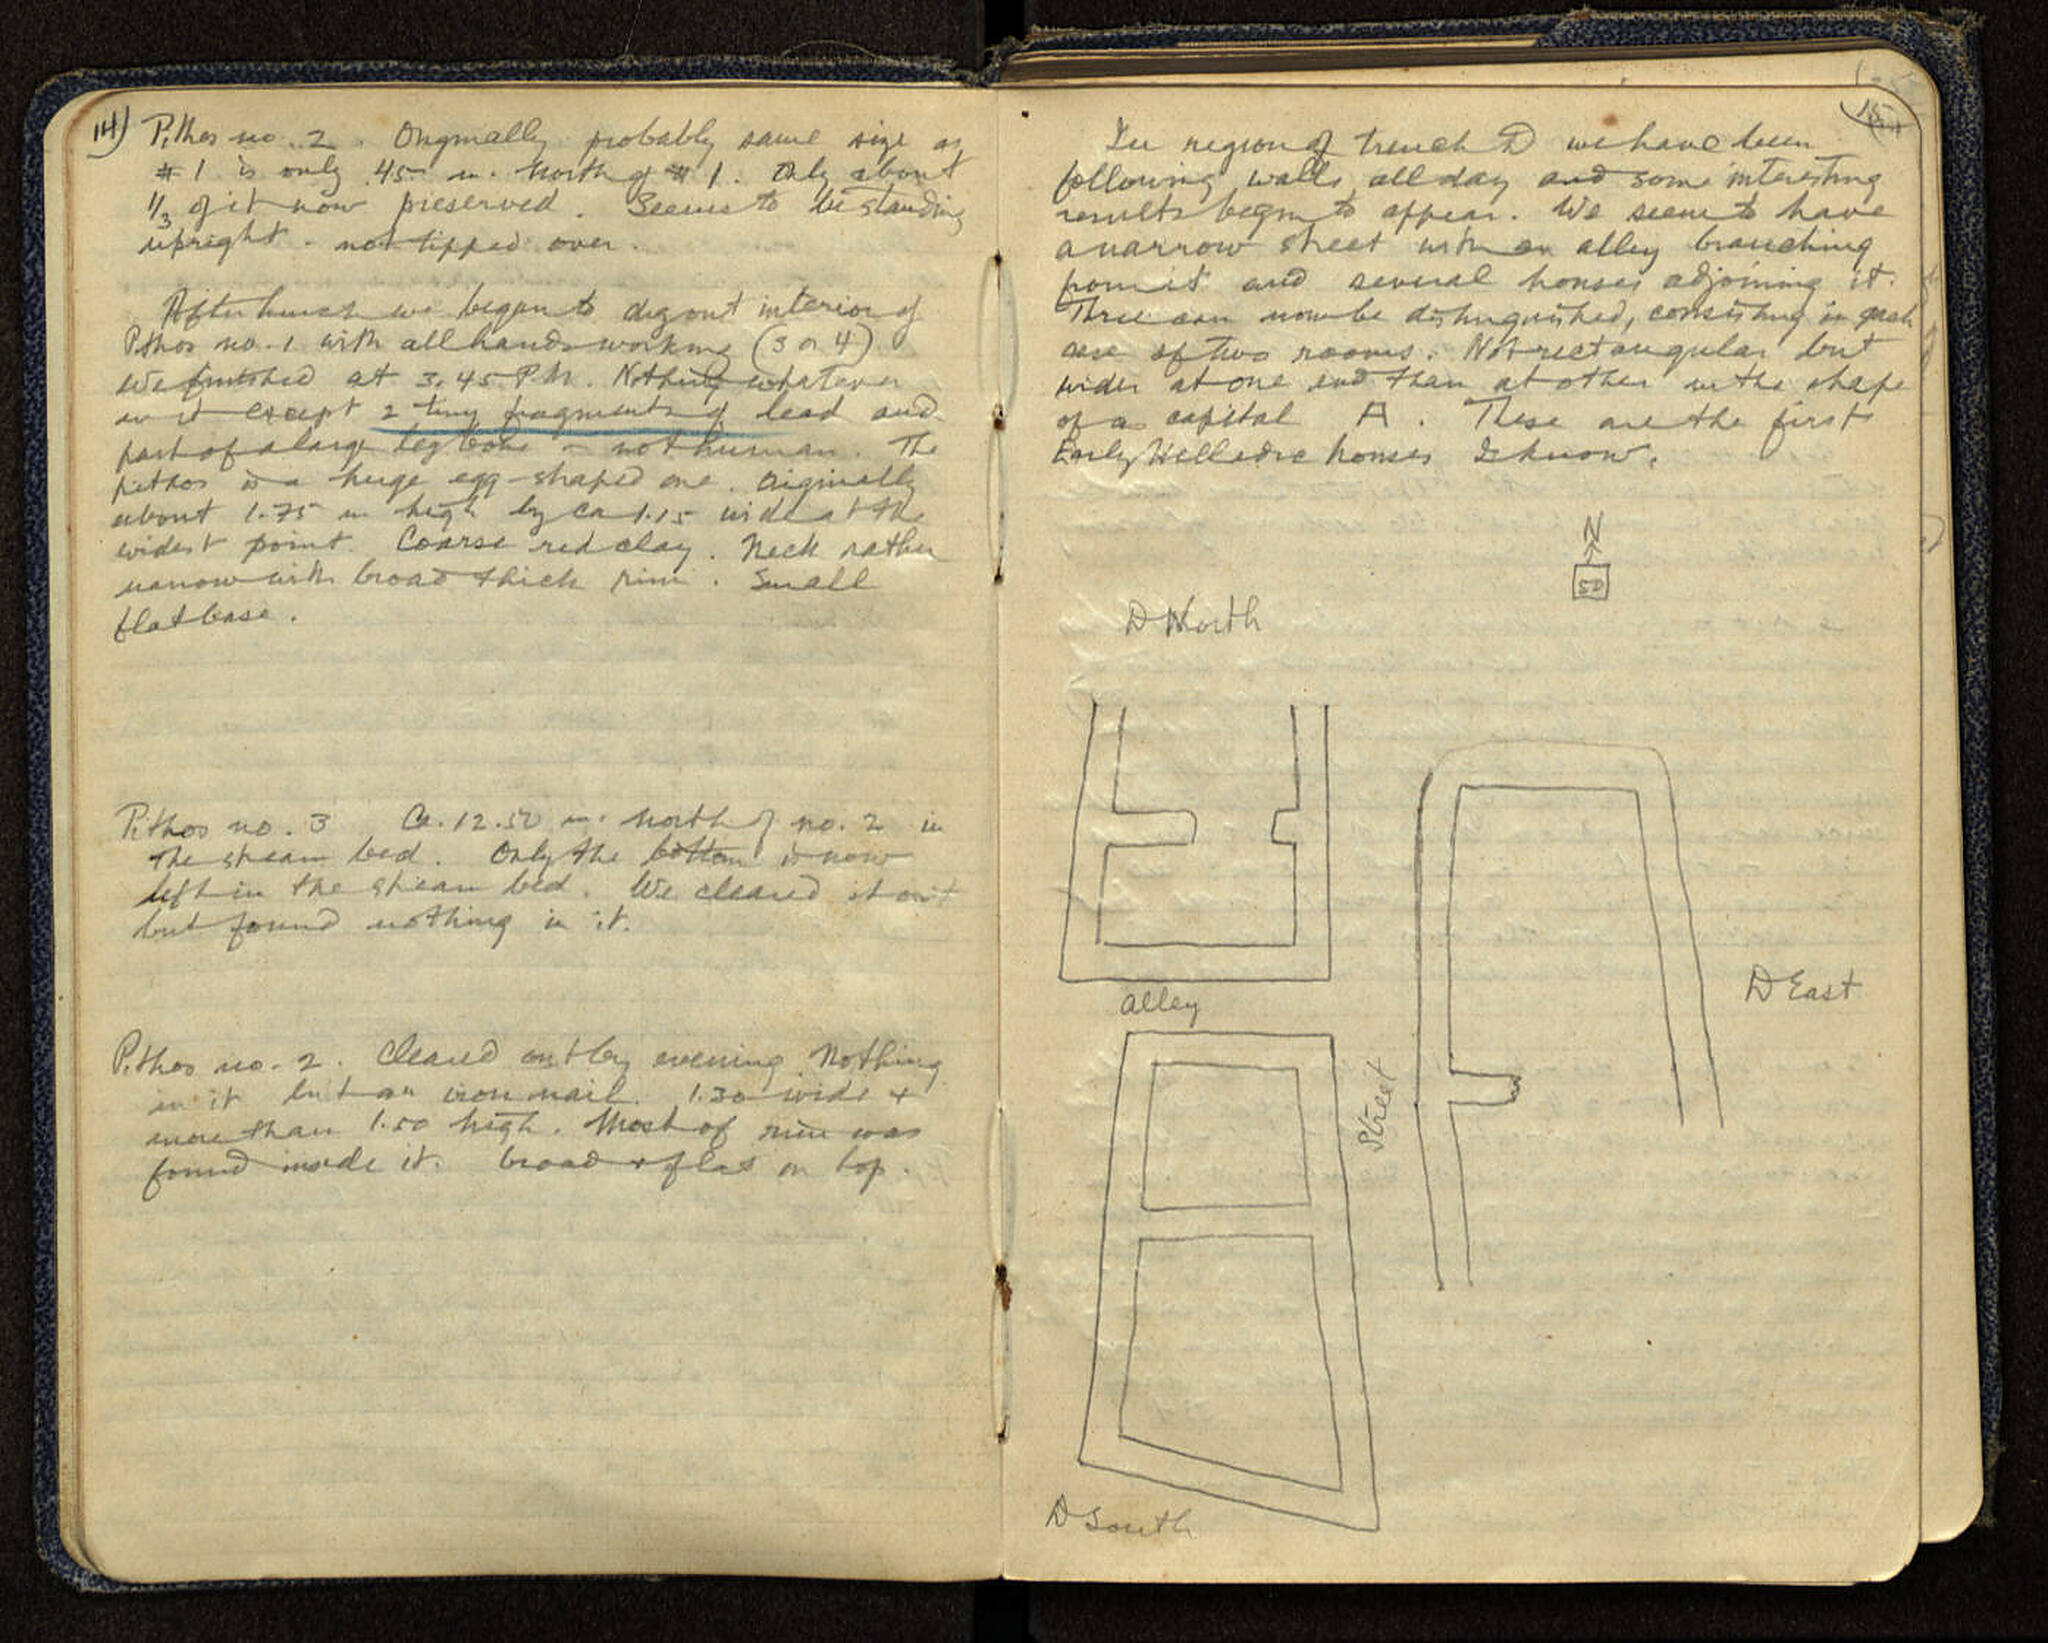 14)
Pithos no. 2. Originally probably same size as
#1 is only .45 m. North of #1. Only about
1/3 of it now preserved. Seems to be standing
upright - not tipped over.
After lunch we began to dig out interior of
Pithos no. 1 with all hands working (3 or 4)
We finished at 3.45 P.M. Nothing whatever
in it except 2 tiny fragments of lead and
part of a large leg bone - not human. The
pithos is a huge egg-shaped one. Originally
about 1.75 m high by ca 1.15 wide at the
widest point. Coarse red clay. Neck rather
narrow with broad thick rim. Small
flat base.
Pithos no. 3 Ca. 12.50 m. North of no. 2 in
the stream bed. Only the bottom is now
left in the stream bed. We cleared it out
but found nothing in it.
Pithos no. 2. Cleared out by evening. Nothing
in it but an iron nail. 1.30 wide +
more than 1.50 high. Most of rim was
found inside it. broad + flat on top.
15
In region of trench D we have been
following walls all day and some interesting
results begin to appear. We seem to have
a narrow street with an alley branching
from it and several houses adjoining it.
Three can now be distinguished, consisting in each
case of two rooms. Not rectangular but
wider at one end than at other in the shape
of a capital A. These are the first
Early Helladic houses I know.
N
50
D North
alley
D East
Street
D South